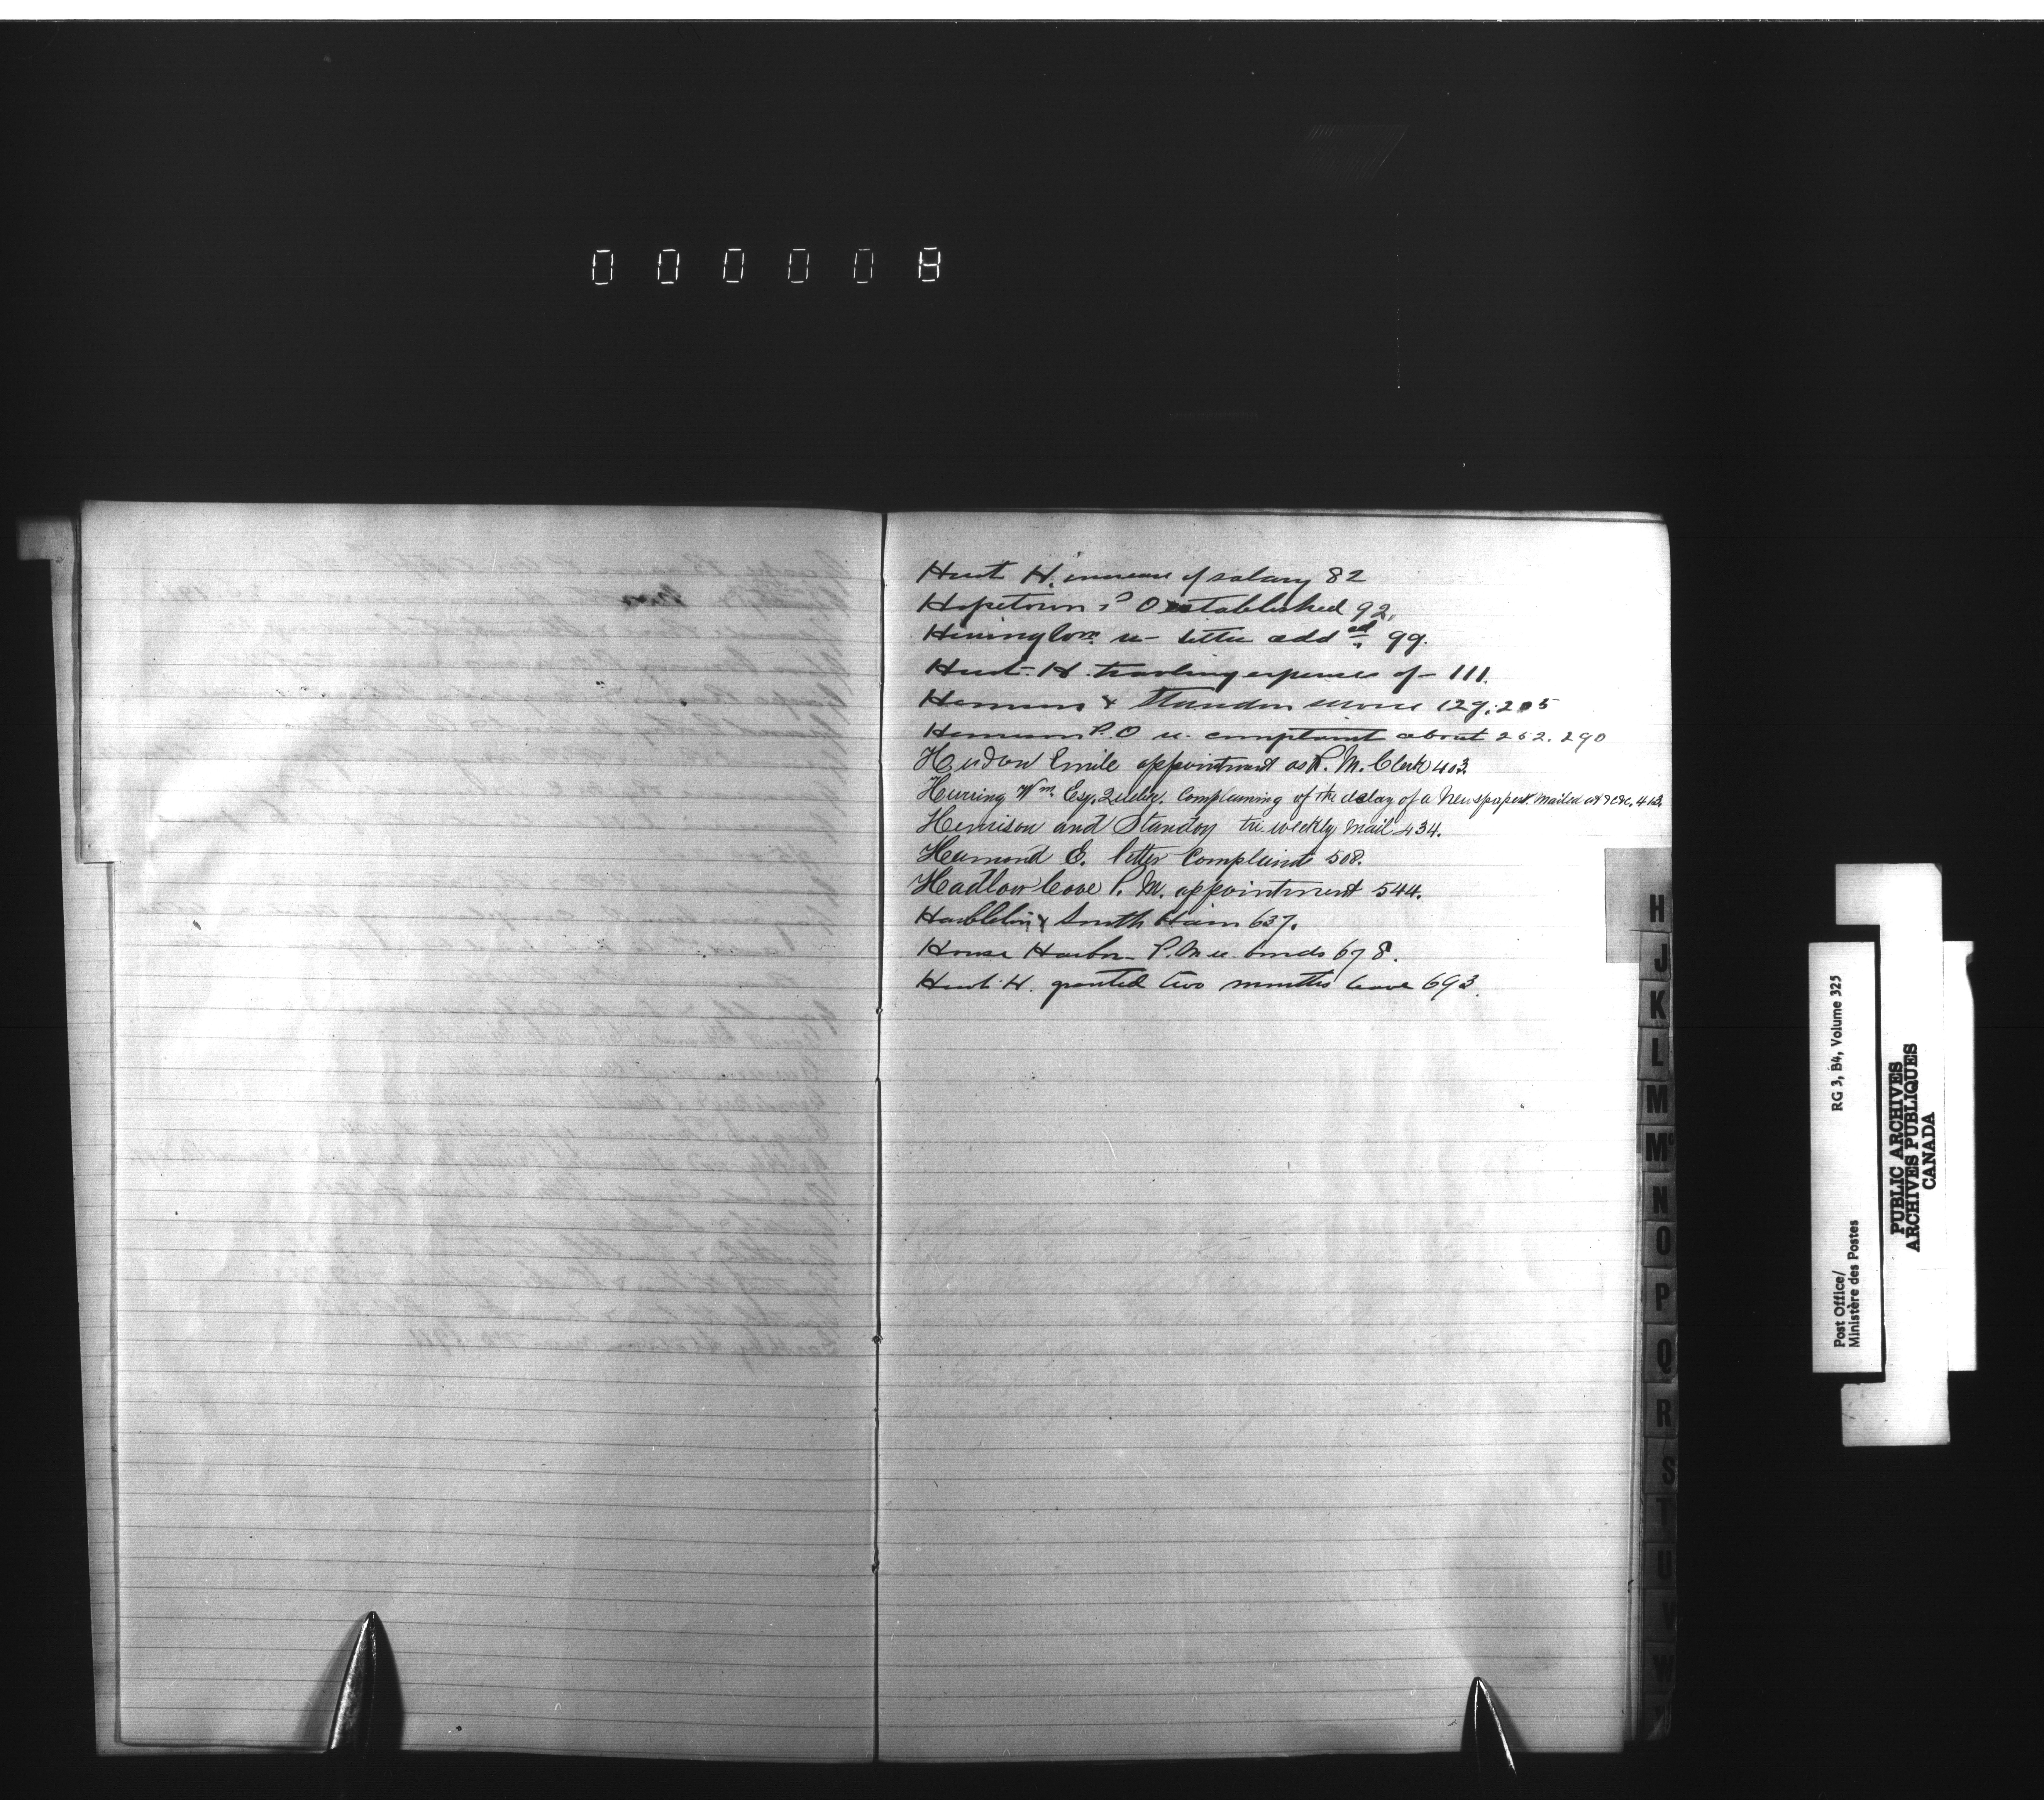 000008
Hunt H. increase of salary 82
Hopetown P O established 92,
re letter add ed 99.
Hunt H. travling expenses of 111.
& Standon service 129, 205
P.O re complaint about 262. 290
Hudon Emile appointment as R. M. Clerk 403.
Herring Wm. Esq. Quebec. Complaining of the delay of a Newspaper Mailed at &c &c, 412.
Hemison and Standon tri weekly Mail 434.
Hamond E. letter Complaint 508.
Hadlow Cove P. M. appointment 544.
& South Ham 637.
House Harbor P.M re bonds 678.
Hunt H. granted two months leave 693.
H
J
K
L
M
Mc
N
O
P
Q
R
S
T
U
V
W
Y
Post Office/
Ministère des Postes
RG 3, B4, Volume 325
PUBLIC ARCHIVES
ARCHIVES PUBLIQUES
CANADA